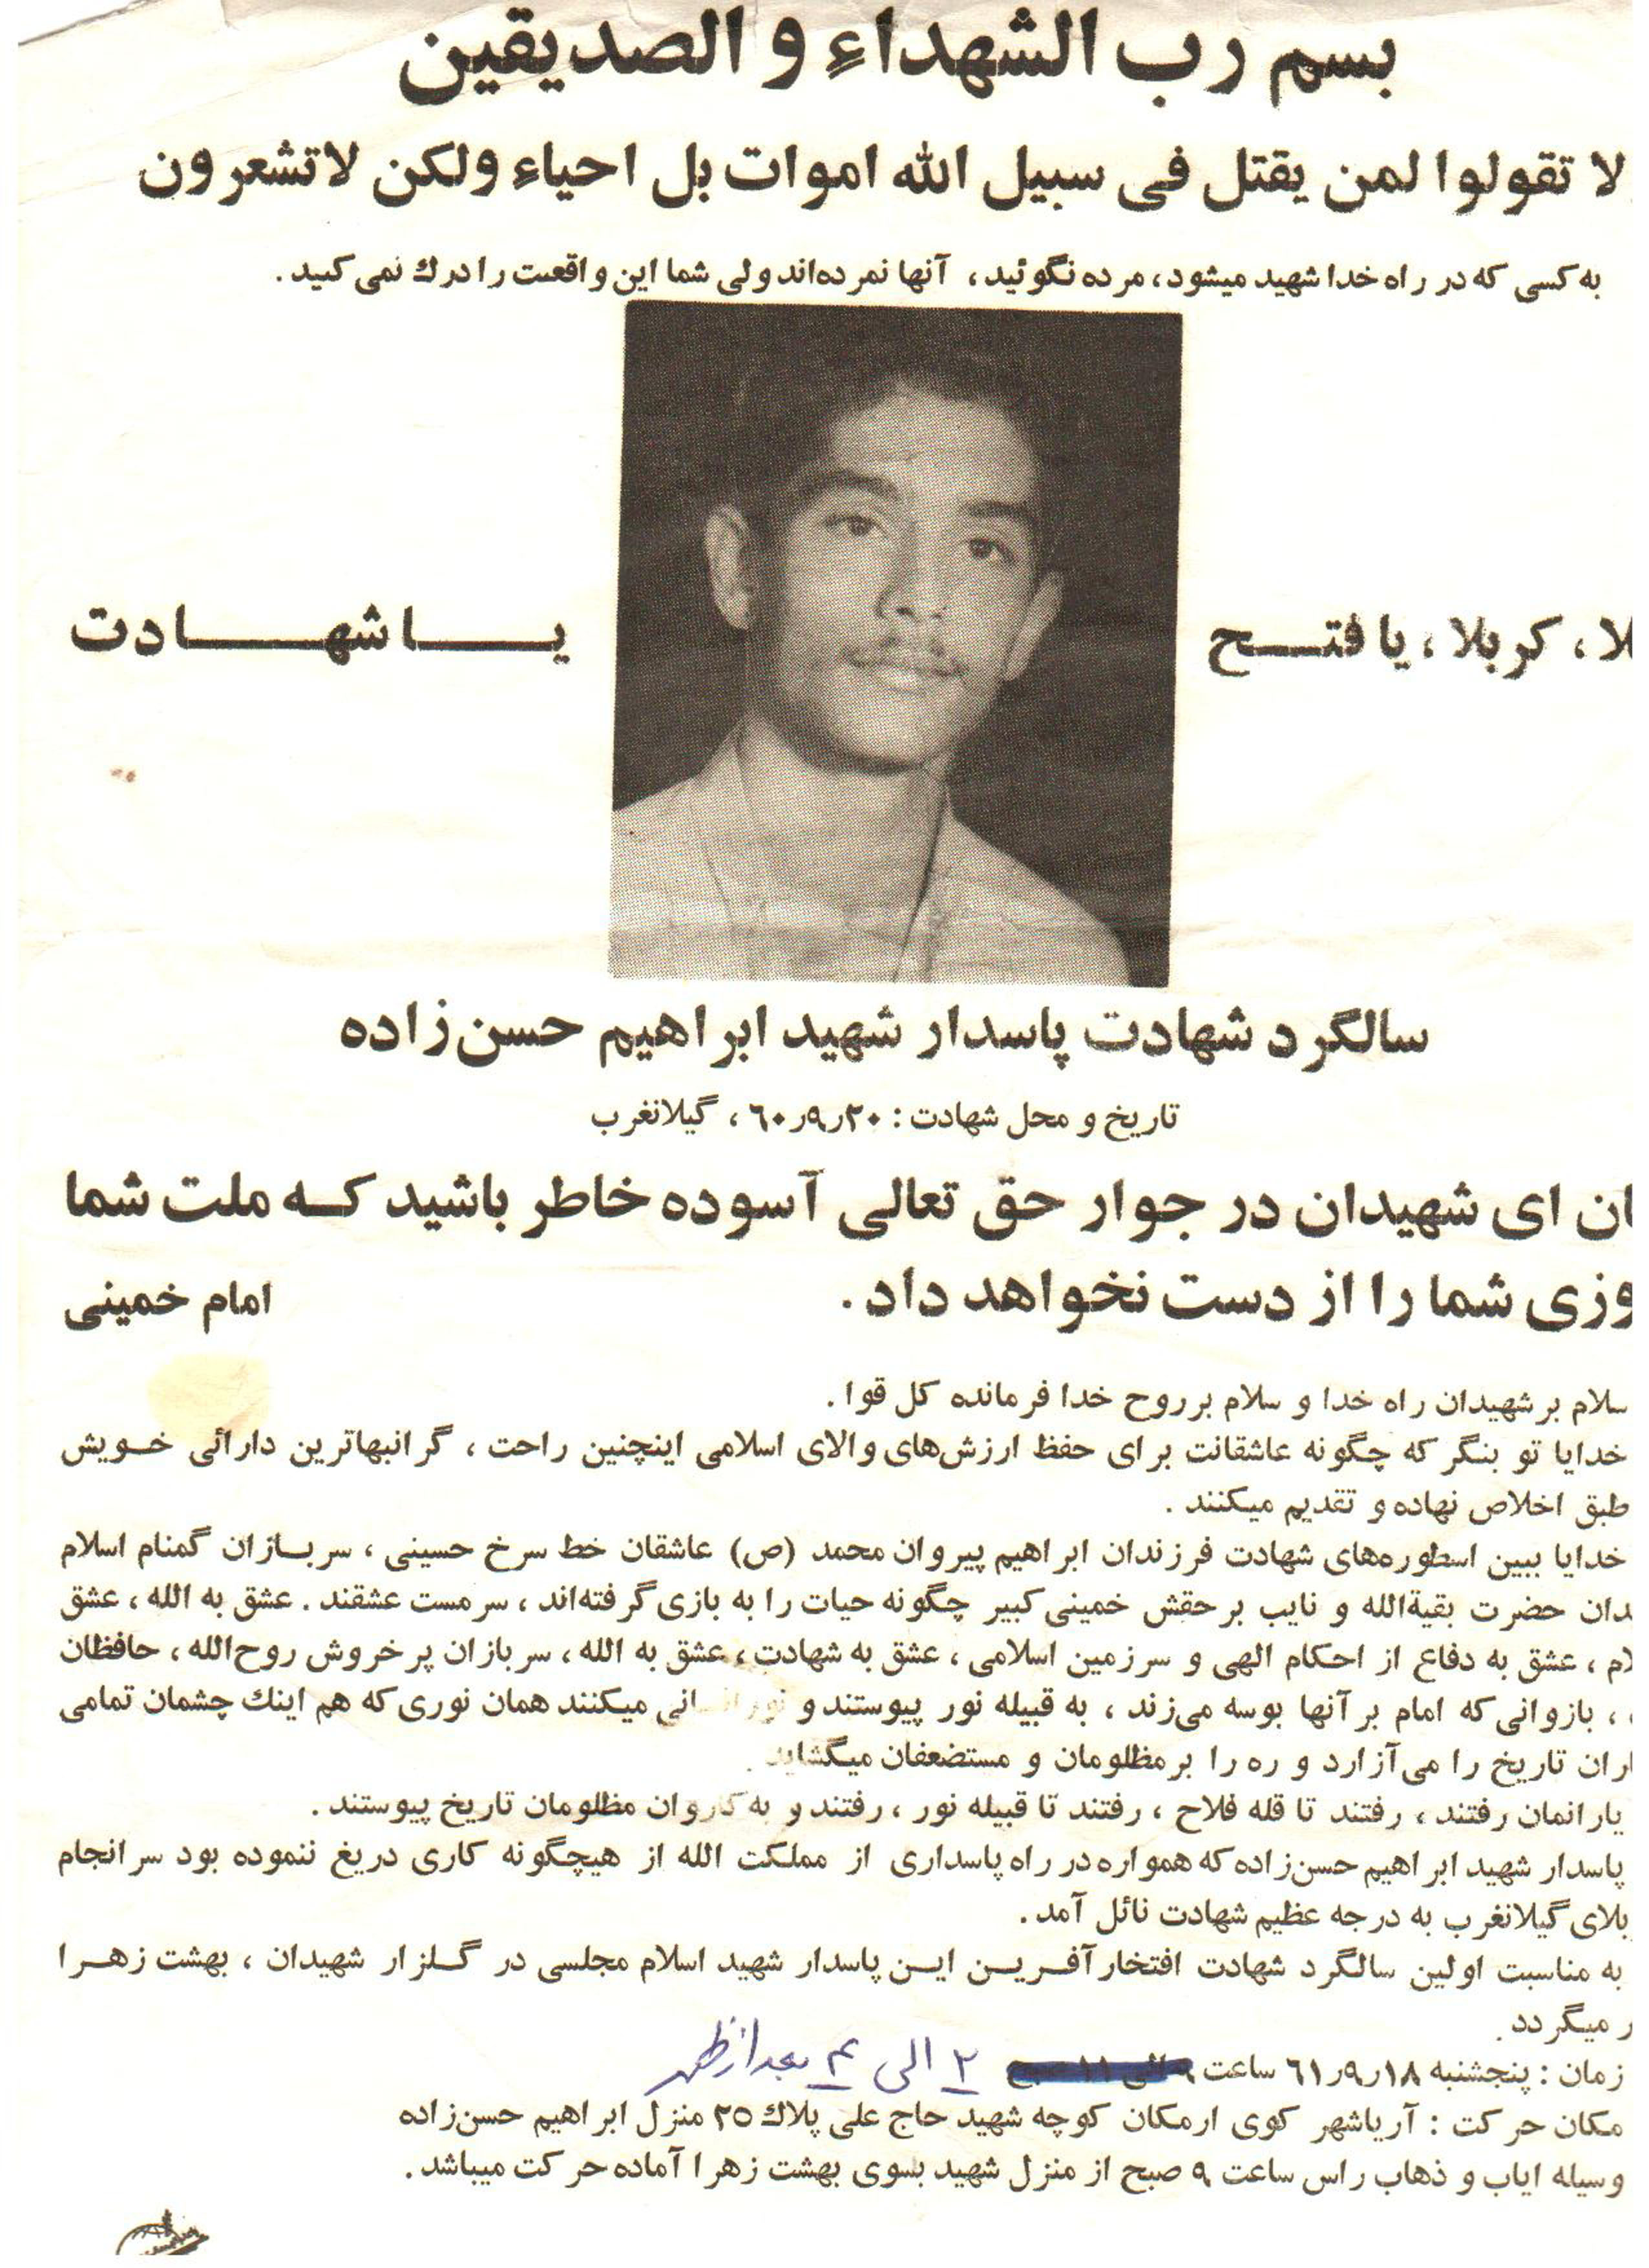 بسم رب الشهداء و الصدیقین
لا تقولوا لمن یقتل فی سبیل الله اموات بل احیاء ولکن لاتشعرون
به کسی که در راه خدا شهید میشود، مرده نگوئید، آنها نمرده‌اند ولی شما این واقعیت را درك نمی کنید.
کربلا، یا فتـــح
یــــا شهــــادت
سالگرد شهادت پاسدار شهید ابراهیم حسن‌زاده
تاریخ و محل شهادت: ۶۰٫۹٫۲۰، گیلانغرب
ای شهیدان در جوار حق تعالی آسوده خاطر باشید کـه ملت شما
شما را از دست نخواهد داد.
امام خمینی
سلام بر شهیدان راه خدا و سلام بر روح خدا فرمانده کل قوا.
خدایا تو بنگر که چگونه عاشقانت برای حفظ ارزش‌های والای اسلامی اینچنین راحت، گرانبهاترین دارائی خـویش
طبق اخلاص نهاده و تقدیم میکنند.
خدایا ببین اسطوره‌های شهادت فرزندان ابراهیم پیروان محمد (ص) عاشقان خط سرخ حسینی، سربـازان گمنام اسلام
حضرت بقیةالله و نایب برحقش خمینی کبیر چگونه حیات را به بازی گرفته‌اند، سرمست عشقند. عشق به الله، عشق
، عشق به دفاع از احکام الهی و سرزمین اسلامی، عشق به شهادت، عشق به الله، سربازان پر خروش روح‌الله، حافظان
، بازوانی که امام بر آنها بوسه می‌زند، به قبیله نور پیوستند و میکنند همان نوری که هم اینك چشمان تمامی
تاریخ را می‌آزارد و ره را بر مظلومان و مستضعفان میگشاید.
یارانمان رفتند، رفتند تا قله فلاح، رفتند تا قبیله نور، رفتند و به کاروان مظلومان تاریخ پیوستند.
پاسدار شهید ابراهیم حسن‌زاده که همواره در راه پاسداری از مملکت الله از هیچگونه کاری دریغ ننموده بود سرانجام
گیلانغرب به درجه عظیم شهادت نائل آمد.
به مناسبت اولین سالگرد شهادت افتخارآفـریـن ایـن پاسدار شهید اسلام مجلسی در گـلزار شهیدان، بهشت زهـرا
میگردد.
زمان: پنجشنبه ۶۱٫۹٫۱۸ ساعت ۲ الی ۴ بعدازظهر
مکان حرکت: آریاشهر کوی ارمکان کوچه شهید حاج علی پلاك ۲۵ منزل ابراهیم حسن‌زاده
وسیله ایاب و ذهاب راس ساعت ۹ صبح از منزل شهید بسوی بهشت زهرا آماده حرکت میباشد.